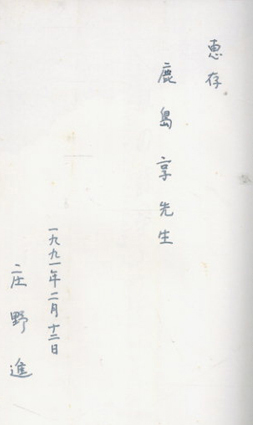 恵存
鹿島享先生
一九九一年二月十二日
庄野進